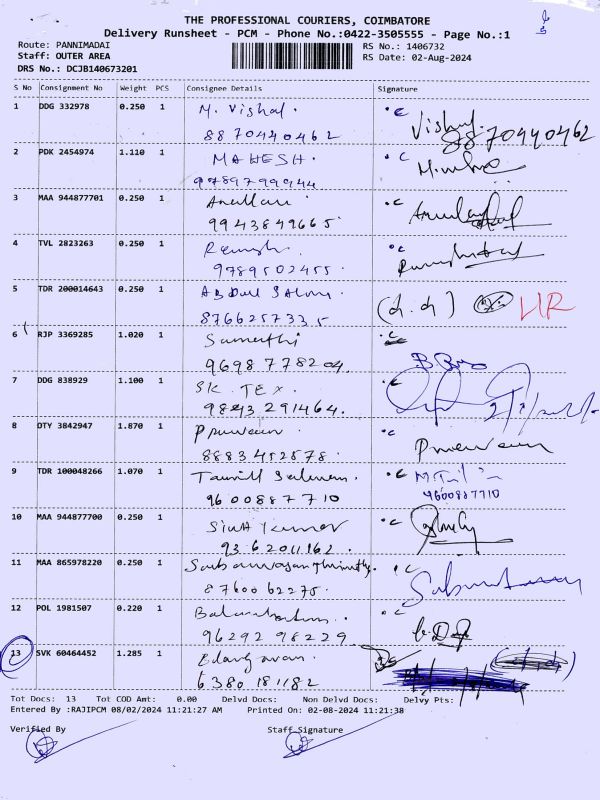 THE PROFESSIONAL COURIERS, COIMBATORE
Delivery Runsheet - PCM - Phone No.:0422-3505555 - Page No.:1
Route: PANNIMADAI
RS No.: 1406732
Staff: OUTER AREA
RS Date: 02-Aug-2024
DRS No.: DCJB140673201
S No Consignment No Weight PCS Consignee Details Signature
1 DDG 332978 0.250 1 M. Vishal.
8870440462 Vishal 8870440462
2 PDK 2454974 1.110 1 MAHESH.
3 MAA 944877701 0.250 1
9943849665
4 TVL 2823263 0.250 1 Ramesh.
9789502455.
5 TDR 200014643 0.250 1 Abdul Salam.
8766257335 (d.d)
6 RJP 3369285 1.020 1 Sumathi
9698778204.
7 DDG 838929 1.100 1 SK. TEX.
9843 291464.
8 OTY 3842947 1.870 1
8883452578.
9 TDR 100048266 1.070 1 Tamil Selvan.
9600887710 9600887710
10 MAA 944877700 0.250 1 Siva Kumar
9362011162.
11 MAA 865978220 0.250 1
8760062275.
12 POL 1981507 0.220 1
96292 98229
13 SVK 60464452 1.285 1
6380181182
Tot Docs: 13 Tot COD Amt: 0.00 Delvd Docs: Non Delvd Docs: Delvy Pts:
Entered By :RAJIPCM 08/02/2024 11:21:27 AM Printed On: 02-08-2024 11:21:38
Verified By Staff Signature